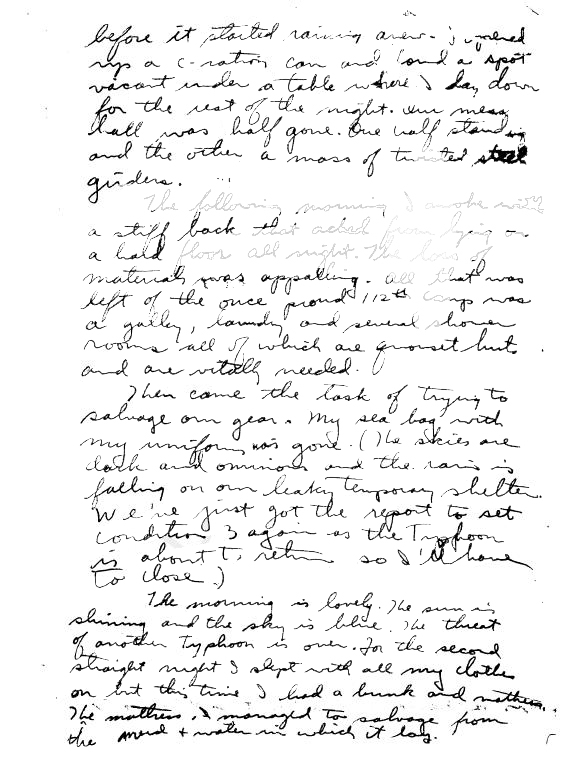 before it started raining anew. I opened
up a c-ration can and found a spot
vacant under a table where I lay down
for the rest of the night. Our mess
hall was half gone. One half standing
and the other a mass of twisted steel
girders. ...
The following morning I awoke with
a stiff back that ached from lying on
a hard floor all night. The loss of
materials was appalling. All that was
left of the once proud 112th Camp was
a galley, laundry and several shower
rooms all of which are quonset huts
and are vitally needed.
Then came the task of trying to
salvage our gear. My sea bag with
my uniforms was gone. (The skies are
dark and ominous and the rain is
falling on our leaky temporary shelter.
We've just got the report to set
condition 3 again as the Typhoon
is about to return so I'll have
to close.)
The morning is lovely. The sun is
shining and the sky is blue. The threat
of another Typhoon is over. For the second
straight night I slept with all my clothes
on but this time I had a bunk and mattress.
The mattress, I managed to salvage from
the mud + water in which it lay.